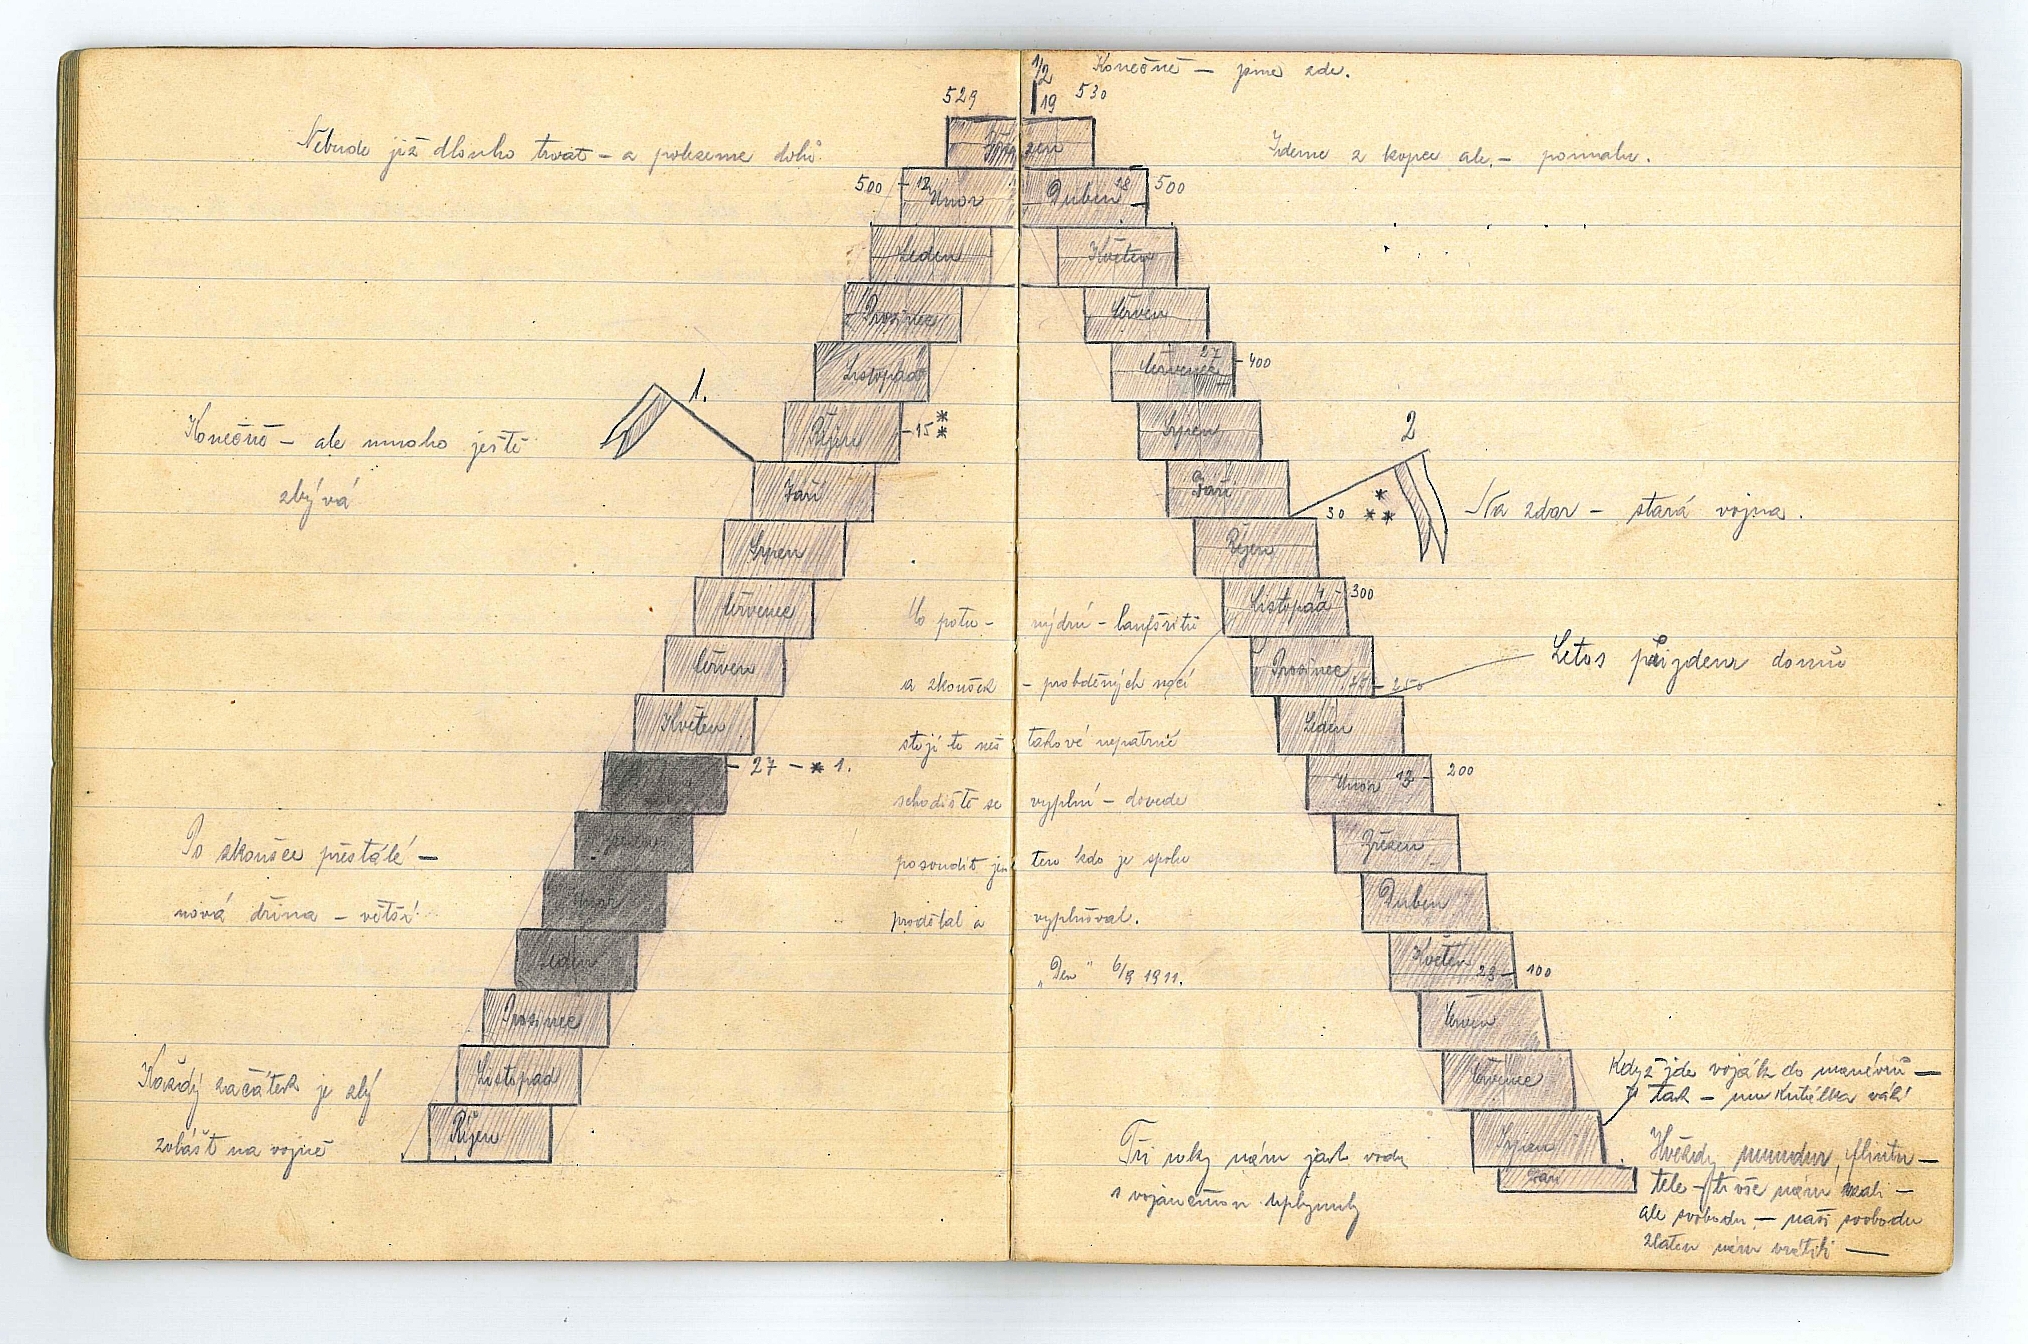 1/2 19
Konečně – jsme zde.
529
530
Nebude již dlouho trvat – a polezeme dolů
Jdeme z kopce ale, – pomalu.
Březen
500 – Únor
Duben 18 500
Leden
Květen
Prosinec
Červen
Listopad
Červenec 27 – 400
1.
Říjen – 15 * *
Srpen
2
Konečně – ale mnoho ještě
zbývá
Září
Září
30 * * *
Na zdar – stará vojna.
Srpen
Říjen
Červenec
Listopad 4 – 300
Červen
Prosinec 15 – 250
Letos přijdem domů
Květen
Leden
– 27 – * 1.
Únor 13 – 200
Březen
Březen
Únor
Duben
Leden
Květen 23 – 100
Prosinec
Červen
Listopad
Červenec
Říjen
Srpen
Září
Co potu –
a zkoušek – probděných nocí
stojí to než takové nepatrné
schodiště se vyplní – dovede
posoudit jen ten kdo je spolu
prodělal a vyplňoval.
„Den“ 6/9 1911.
Po zkoušce přestálé –
nová dřina – větší
Každý začátek je zlý
zvlášť na vojně
Když jde voják do manévrů –
tak – mu kudělkaválí
Tři roky nám jak voda
s vojančinou uplynuly
Hvězdy mundur, flintu –
tele – to vše nám vzali –
ale svobodu – naši svobodu
zlatou nám vrátili –